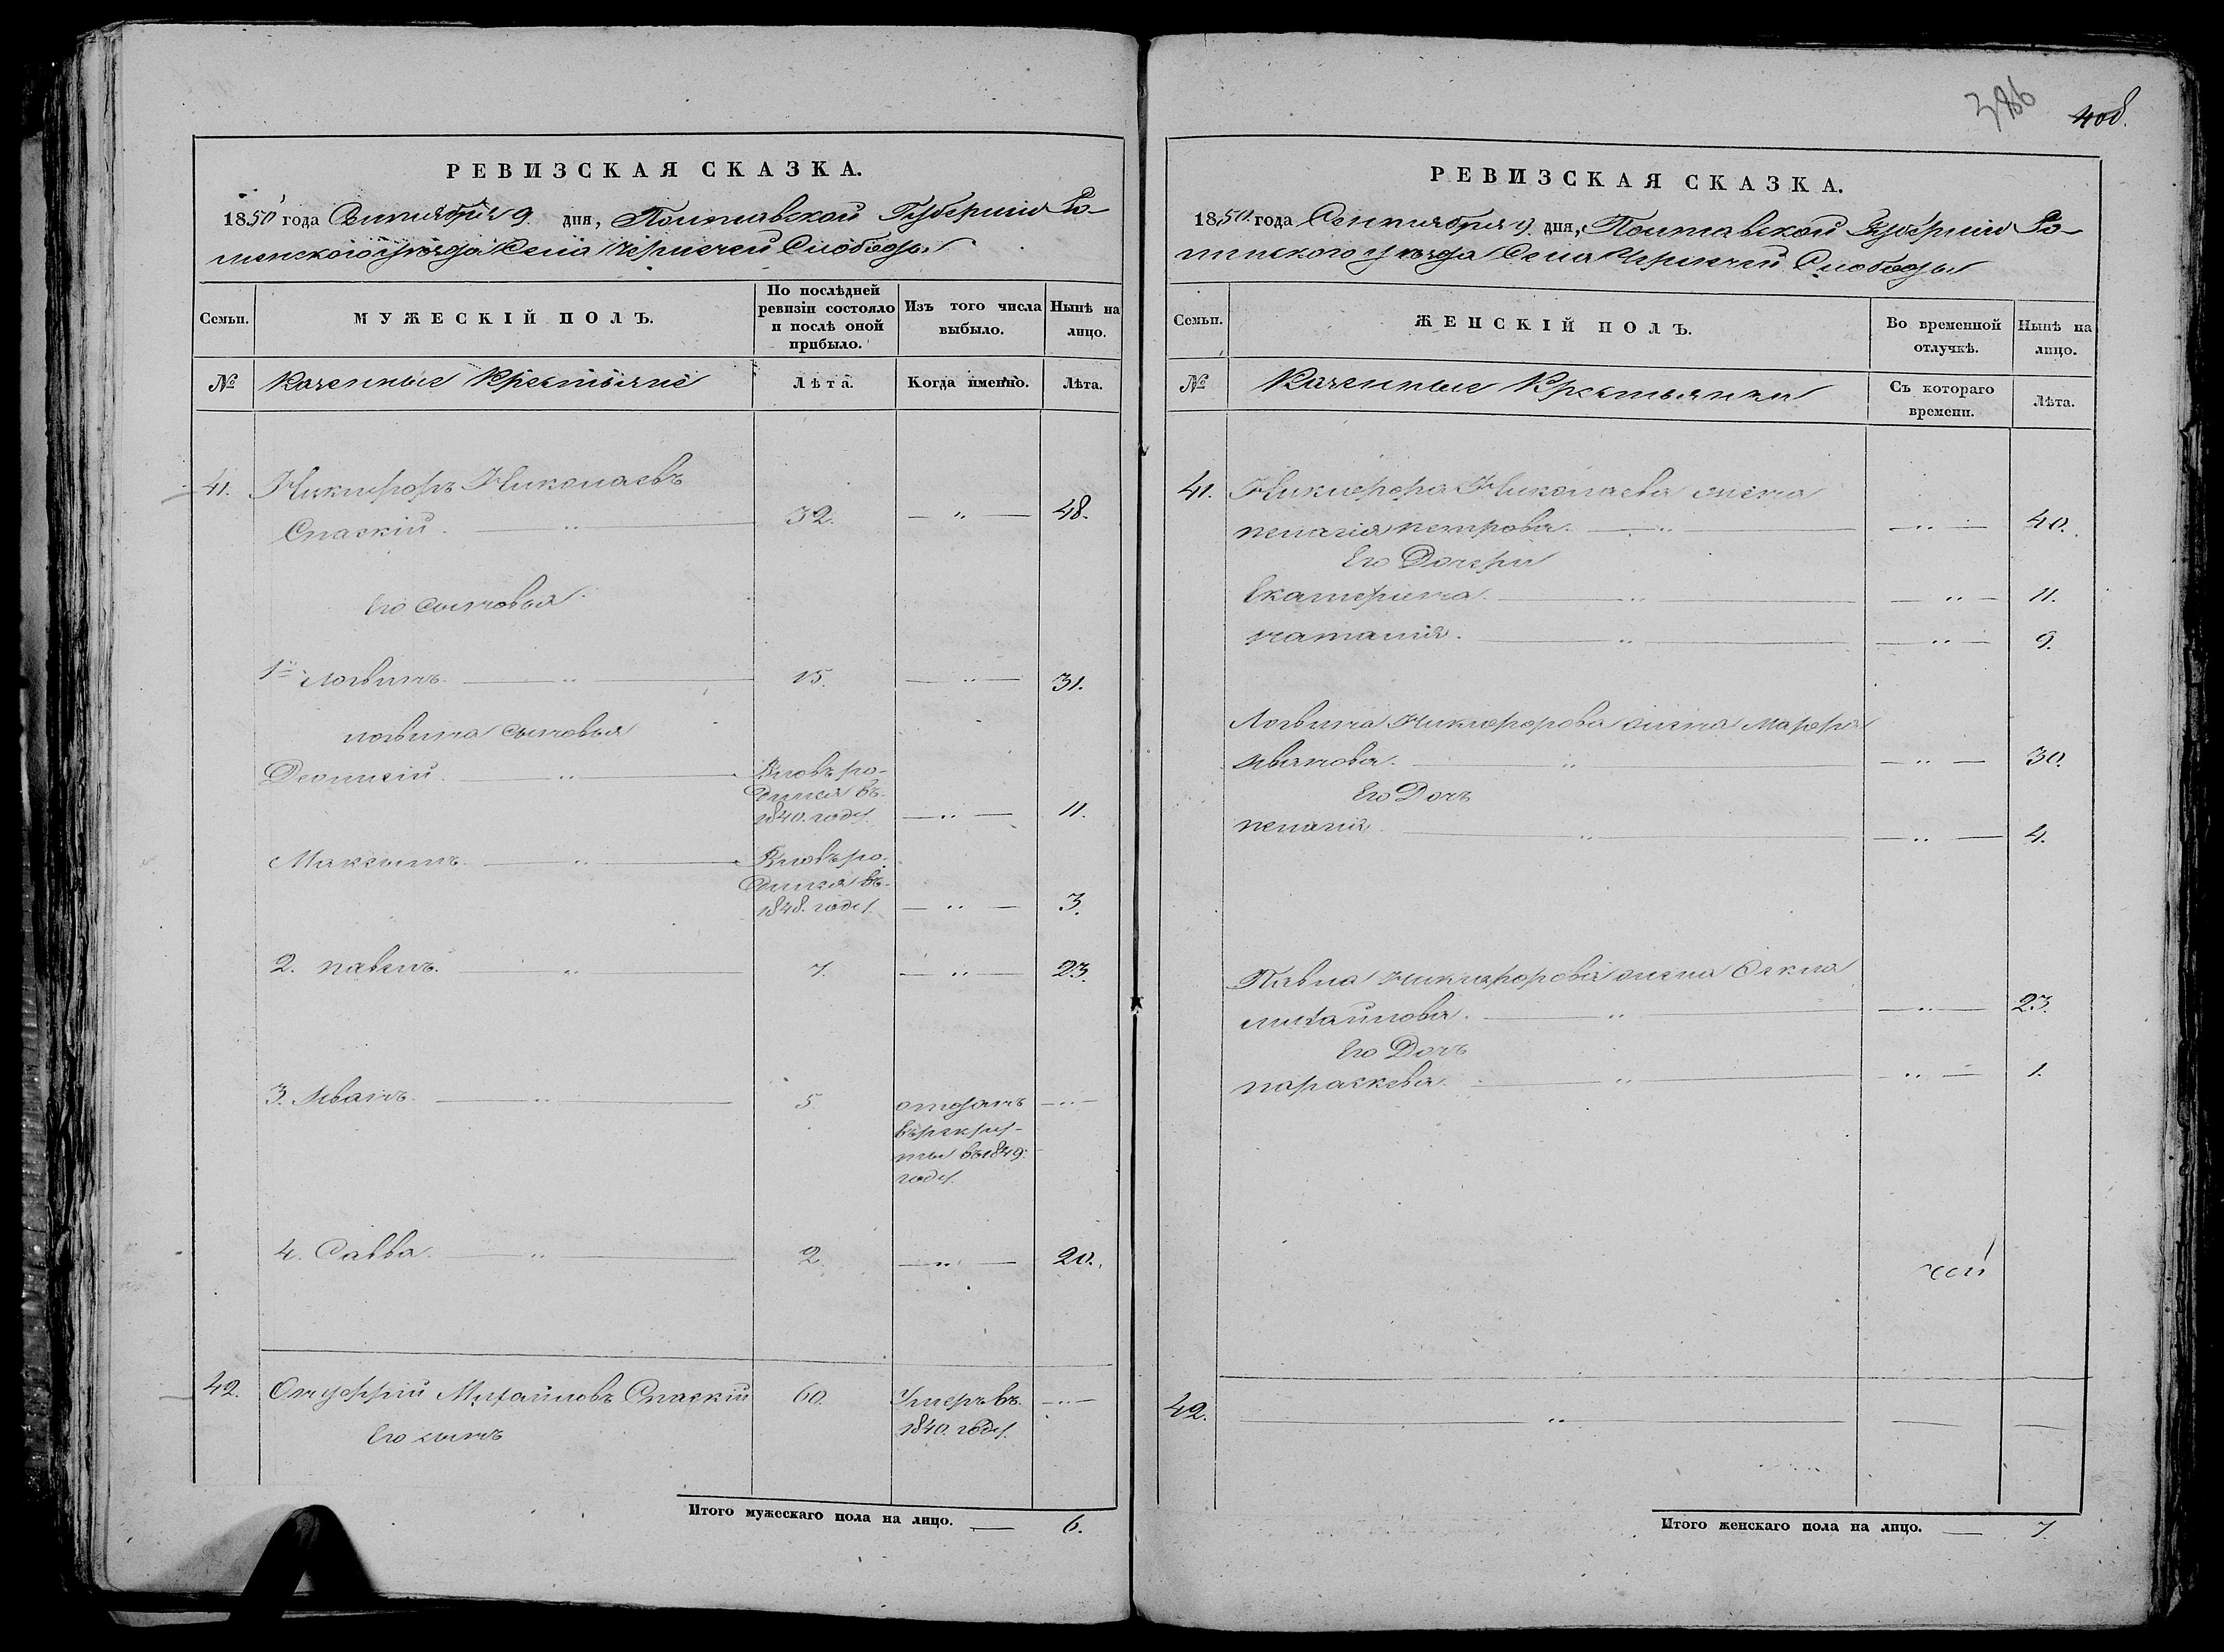 386
408.
РЕВИЗСКАЯ СКАЗКА.
1850 года Сентября 9 дня, Полтавской Губернии Ро-
менского уѣзда Села Чернечей Слободы
Семьи.
МУЖЕСКІЙ ПОЛЪ.
По послѣдней ревизіи состояло и послѣ оной прибыло.
Изъ того числа выбыло.
Нынѣ на лицо.
№
Казенные Крестьяне
Лѣта.
Когда именно.
Лѣта.
41. Никифоръ Николаевъ
Спаскій. — " — 32. — " — 48.
Его сыновья
1й Логвинъ. — " — 15. — " — 31.
логвина сыновья
Деонисій. — " — Вновь ро-
дился въ
1840. году. — " — 11.
Максимъ. — " — Вновь ро-
дился въ
1848. году. — " — 3.
2. павелъ. — " — 7. — " — 23.
3. Иванъ. — " — 5. отданъ — " —
въ рекру-
ты въ 1849.
году.
4. Савва. — " — 2. — " — 20.
42. Онуфрій Михайловъ Спаскій 60. Умеръ въ — " —
Его сынъ 1840. году.
Итого мужескаго пола на лицо. — 6.
РЕВИЗСКАЯ СКАЗКА.
1850 года Сентября 9 дня, Полтавской Губернии Ро-
менского уѣзда Села Чернечей Слободы
Семьи.
ЖЕНСКІЙ ПОЛЪ.
Во временной отлучкѣ.
Нынѣ на лицо.
№
Казенные Крестьянки
Съ котораго времени.
Лѣта.
41. Никифора Николаева жена
пелагія петрова. — " — — " — 40.
Его Дочери
Екатерина. — " — — " — 11.
наталія. — " — — " — 9.
Логвина Никифорова жена Марфа
Иванова. — " — — " — 30.
Его Дочь
пелагія. — " — — " — 4.
Павла Никифорова жена Оекла
михайлова. — " — — " — 23.
Его Дочь
параскева. — " — — " — 1.
42. — " — — —
Итого женскаго пола на лицо. — 7.